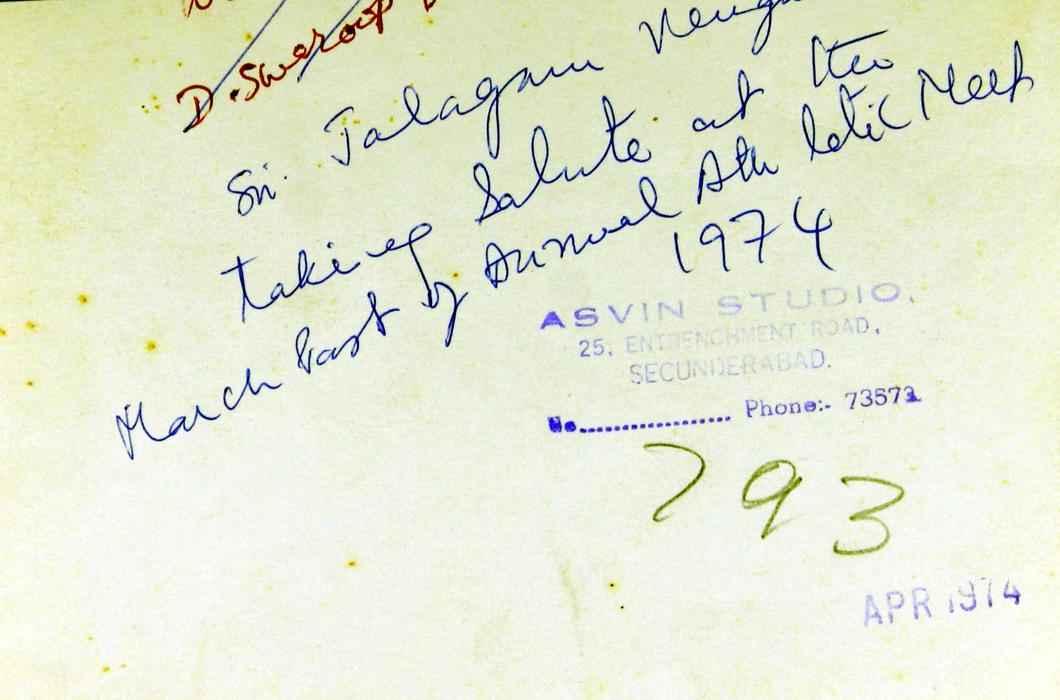 D. Swaroop
Sri. Jalagam Venga
taking Salute at the
March Past of Annual Athletic Meet
1974
ASVIN STUDIO,
25, ENTRENCHMENT ROAD,
SECUNDERABAD.
No.................. Phone:- 73573
793
APR 1974